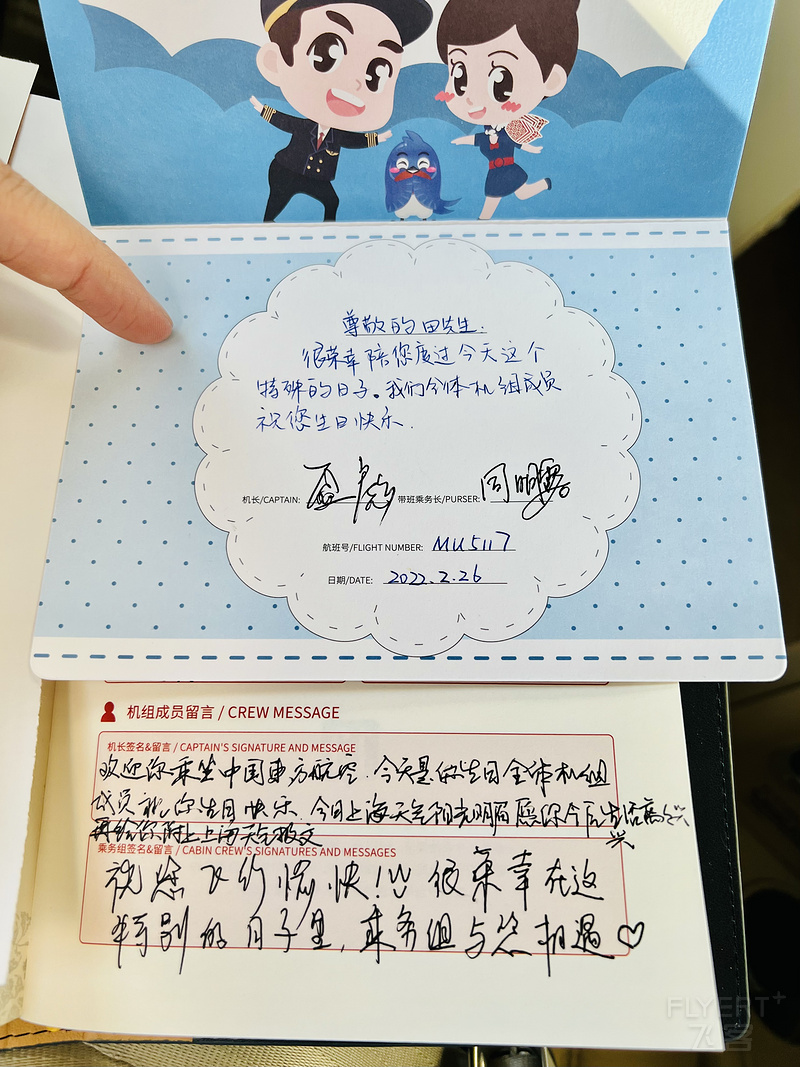 尊敬的田先生:
很荣幸陪您度过今天这个
特殊的日子。我们全体机组成员
祝您生日快乐.
机长/CAPTAIN: 带班乘务长/PURSER: 周明露
航班号/FLIGHT NUMBER: MU5117
日期/DATE: 2022.2.26
机组成员留言 / CREW MESSAGE
机长签名&留言 / CAPTAIN'S SIGNATURE AND MESSAGE
欢迎你乘坐中国东方航空.今天是你生日全体机组
成员祝你生日快乐.今日上海天气阳光明媚愿你今后生活高高兴
兴
再给你附上上海天气报文
乘务组签名&留言 / CABIN CREW'S SIGNATURES AND MESSAGES
祝您飞行愉快!! 很荣幸在这
特别的日子里,乘务组与您相遇♡
FLYERT+
飞客